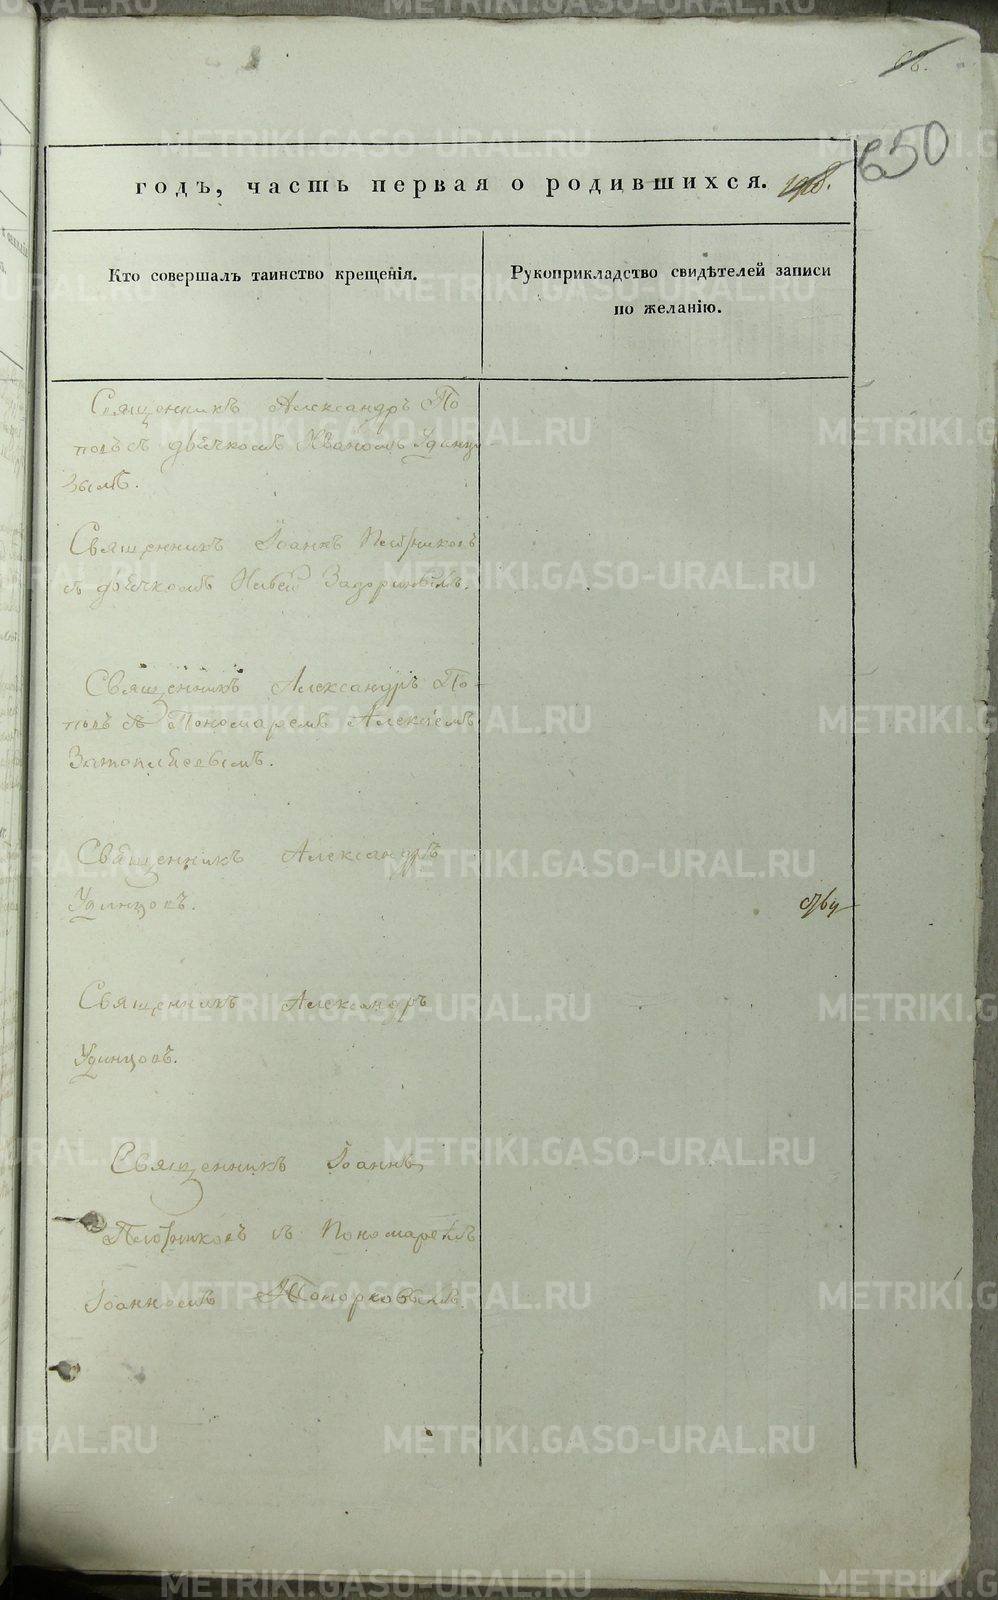 650
годъ, часть первая о родившихся.
Кто совершалъ таинство крещенія.
Рукоприкладство свидѣтелей записи
по желанію.
Священникъ Александръ По
повъ съ дьячкомъ Иваномъ Удинцо
вымъ.
Священникъ Іоаннъ Плотниковъ
съ дьячкомъ Задоринымъ.
Священникъ Александръ По-
повъ съ Пономаремъ Алексѣемъ
Затопляевымъ.
Священникъ Александръ
Удинцовъ.
Священникъ Александръ
Удинцовъ.
Священникъ Іоаннъ
Плотниковъ съ Пономаремъ
Іоанномъ Топорковымъ.
METRIKI.GASO-URAL.RU